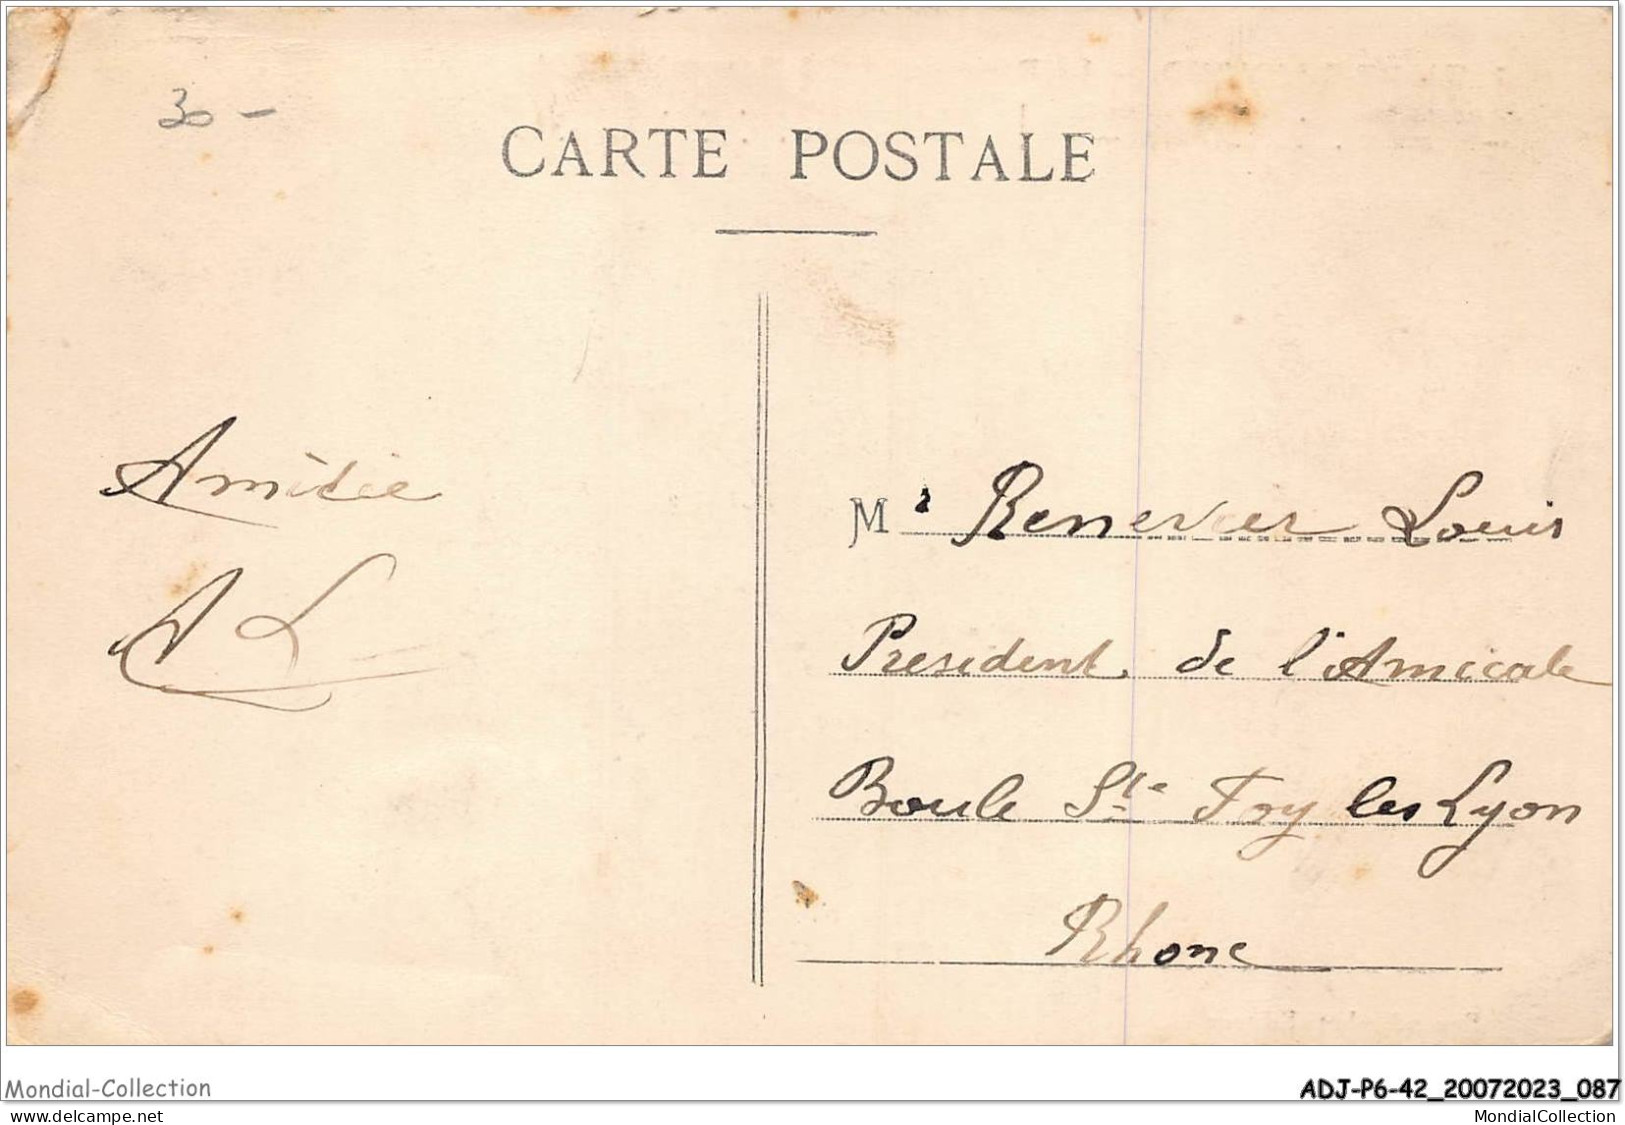 30 -
CARTE POSTALE
Amitie
A L
Mr Renevier Louis
President de l'Amicale
Boule Ste Foy les Lyon
Rhone
Mondial-Collection
ADJ-P6-42_20072023_087
www.delcampe.net
MondialCollection